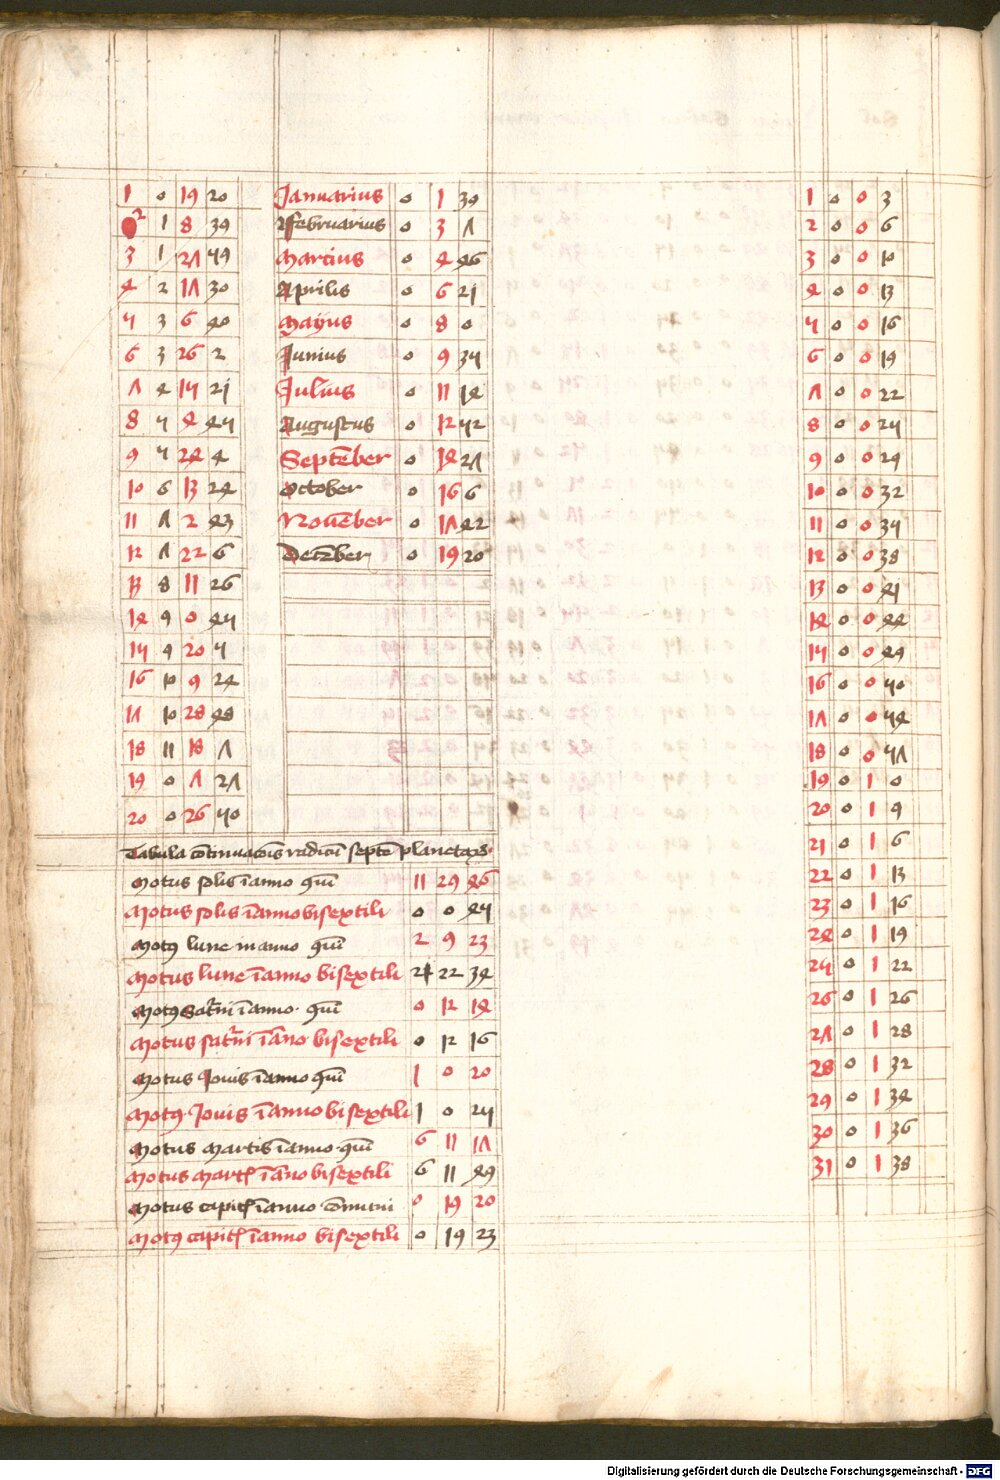 1 0 19 20
2 1 8 39
3 1 27 59
4 2 17 30
5 3 6 40
6 3 26 2
7 4 15 21
8 5 4 45
9 5 24 4
10 6 13 24
11 7 2 43
12 7 22 6
13 8 11 26
14 9 0 45
15 9 20 5
16 10 9 24
17 10 28 48
18 11 18 7
19 0 7 27
20 0 26 50
Januarius 0 1 39
Februarius 0 3 7
Martius 0 4 46
Aprilis 0 6 21
Mayus 0 8 0
Junius 0 9 35
Julius 0 11 14
Augustus 0 12 52
Septēber 0 14 27
October 0 16 6
Nouēber 0 17 42
Decēber 0 19 20
Tabula cōtinuacōis radicū septē planetaꝝ
Motus solis ī anno quī 11 29 46
Motus solis ī anno bisextili 0 0 45
Motꝰ lune in anno quī 2 9 23
Motus lune ī anno bisextili 22 34
Motꝰ Satᵒni ī anno quī 0 12 14
Motus satᵒni ī āno bisextili 0 12 16
Motus Jouis ī anno quī 1 0 20
Motꝰ Jouis ī anno bisextili 1 0 25
Motus Martis ī anno quī 6 11 17
Motus Martꝭ ī āno bisextili 6 11 49
Motus capitꝭ ī anno cōmuni 0 19 20
Motꝰ capitꝭ ī anno bisextili 0 19 23
1 0 0 3
2 0 0 6
3 0 0 10
4 0 0 13
5 0 0 16
6 0 0 19
7 0 0 22
8 0 0 25
9 0 0 29
10 0 0 32
11 0 0 35
12 0 0 38
13 0 0 41
14 0 0 44
15 0 0 49
16 0 0 50
17 0 0 54
18 0 0 57
19 0 1 0
20 0 1 9
21 0 1 6
22 0 1 13
23 0 1 16
24 0 1 19
25 0 1 22
26 0 1 26
27 0 1 28
28 0 1 32
29 0 1 34
30 0 1 36
31 0 1 38
Digitalisierung gefördert durch die Deutsche Forschungsgemeinschaft - DFG